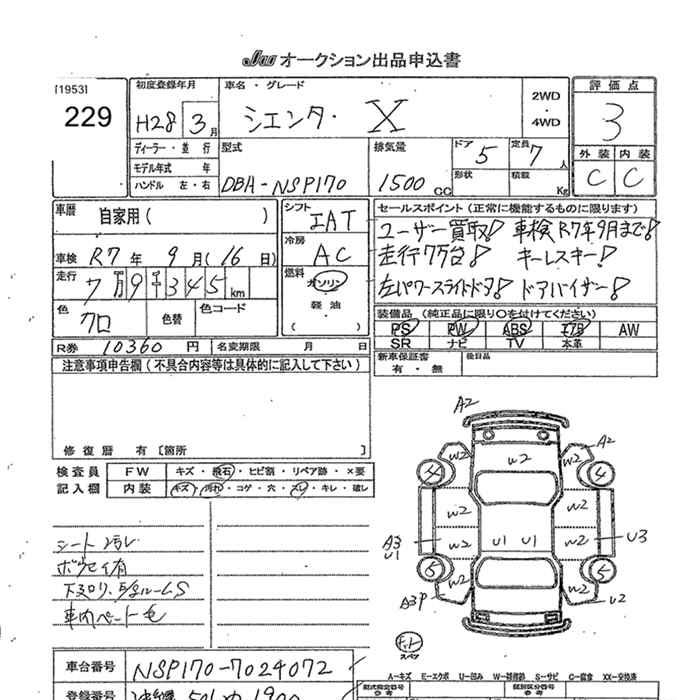 JW オークション出品申込書
[1953]
229
初度登録年月
H28 3月
車名・グレード
シエンタ・ X
2WD
・
4WD
評価点
3
外装 内装
C C
ディーラー・並行
モデル年式 年
ハンドル 左・右
型式
DBA-NSP170
排気量
1500 CC
ドア
5
定員
7人
形状
積載
Kg
車歴
自家用( )
シフト
IAT
セールスポイント(正常に機能するものに限ります)
ユーザー買取! 車検R7年9月まで!
走行7万台! キーレスキー!
左パワースライドドア! ドアバイザー!
車検 R7年 9月(16日)
冷房
AC
走行 7万9千345km
燃料
ガソリン
・
軽油
( )
色
クロ
色替
色コード
装備品(純正品に限り○を付けてください)
PS PW ABS エアB AW
SR ナビ TV 本革
R券 10360円 名変期限 月 日
新車保証書
有・無
後日品
注意事項申告欄(不具合内容等は具体的に記入して下さい)
修復歴 有[箇所 ]
検査員
記入欄
FW キズ・飛石・ヒビ割・リペア跡・×要
内装 キズ・汚れ・コゲ・穴・スレ・キレ・破レ
シート汚レ
車内ペート毛
A2
A2
W2
4 4
W2 W2
W2 W2
W2 U1 U1 W2
U3
A3
U1
5 5
W2 W2
A3P
U2
スペア
A−キズ E−エクボ U−凹み W−補修跡 S−サビ C−腐食 XX−交換済
車台番号 NSP170-7024072
登録番号
型式指定番号
類別区分番号